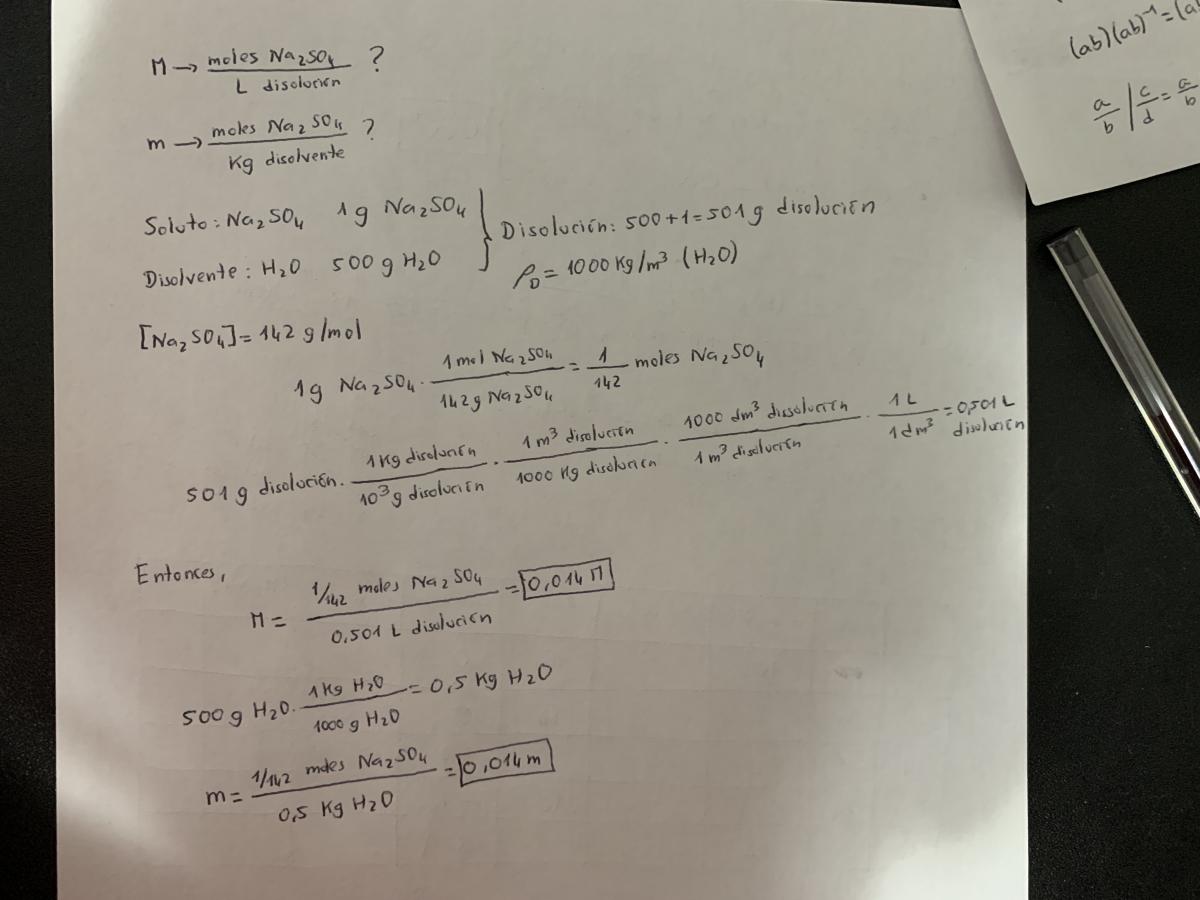 M → moles Na₂SO₄ / L disolución ?
m → moles Na₂SO₄ / Kg disolvente ?
Soluto: Na₂SO₄ 1 g Na₂SO₄
Disolvente: H₂O 500 g H₂O
} Disolución: 500 + 1 = 501 g disolución
ρ_D = 1000 Kg/m³ (H₂O)
[Na₂SO₄] = 142 g/mol
1 g Na₂SO₄ · 1 mol Na₂SO₄ / 142 g Na₂SO₄ = 1/142 moles Na₂SO₄
501 g disolución · 1 Kg disolución / 10³ g disolución · 1 m³ disolución / 1000 Kg disolución · 1000 dm³ dissolución / 1 m³ disolución · 1 L / 1 dm³ = 0,501 L disolución
Entonces,
M = 1/142 moles Na₂SO₄ / 0,501 L disolución = 0,014 M
500 g H₂O · 1 Kg H₂O / 1000 g H₂O = 0,5 Kg H₂O
m = 1/142 moles Na₂SO₄ / 0,5 Kg H₂O = 0,014 m
(ab)(ab)⁻¹ = (a
a/b | c/d = a/b